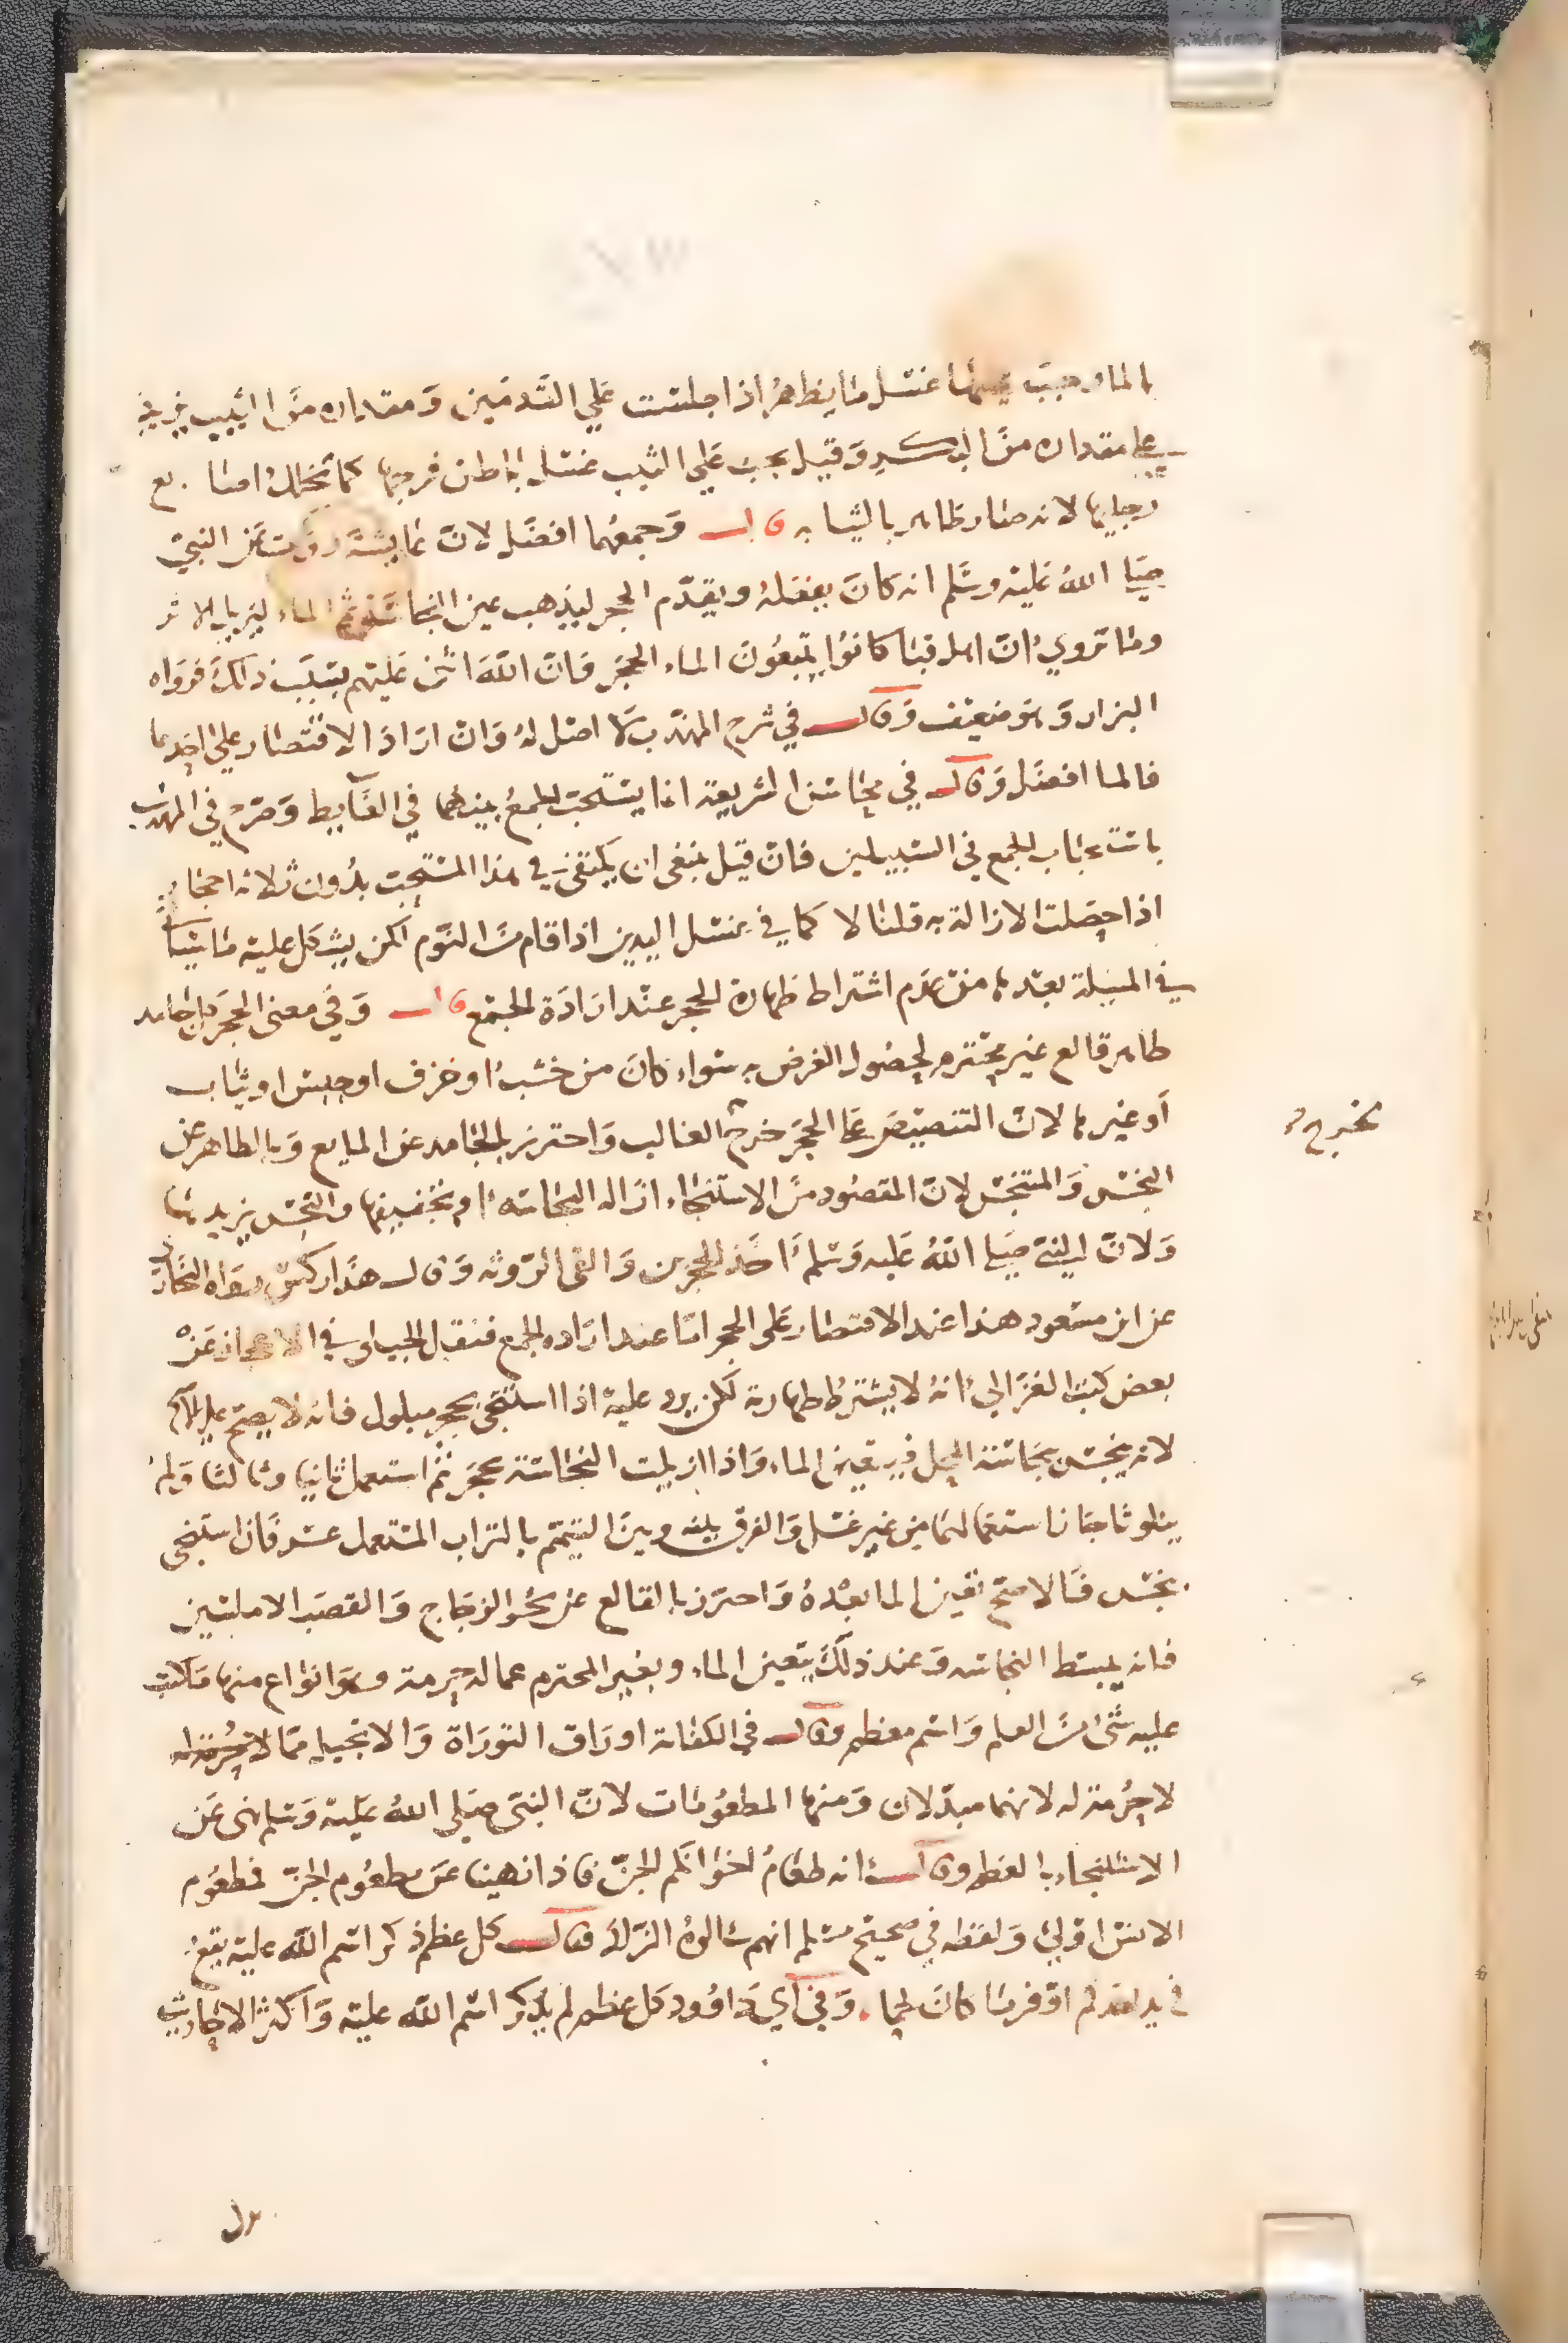 بالماء وجب عليهما غسل ما يظهر اذا جلست علي القدمين ومقداره من الثيب يزيد
علي مقداره من البكر وقيل يجب علي الثيب غسل باطن فرجها كما تخلل اصابع
رجليها لانه صار ظاهر بالثيابه قال وجمعهما افضل لان عايشة روت عن النبي
صلى الله عليه وسلم انه كان يفعله ويقدم الحجر ليذهب عين النجاسة ثم الماء ليزيل الاثر
وما تروي ان اهل قبا كانوا يتبعون الماء الحجر فان الله اثنى عليهم بسبب ذلك فرواه
البزار وهو ضعيف وقال في شرح المهذب لا اصل له وان اراد الاقتصار علي احدهما
فالما افضل وقال في محاسن الشريعة انما يستحب الجمع بينهما في الغايط وصرح في المهذب
باستحباب الجمع في السبيلين فان قيل ينبغي ان يكتفى في هذا المستحب بدون ثلاثه احجار
اذا حصلت الازالة به قلنا لا كما في غسل اليدين اذا قام من النوم لكن يشكل عليه ما سياتي
في المسلة بعدها من عدم اشتراط طهارة الحجر عند ارادة الجمع قال وفي معنى الحجر كل جامد
طاهر قالع غير محترم لحصول الغرض به سواء كان من خشب او خزف او حشيش او ثياب
او غيرها لان التنصيص علي الحجر خرج الغالب واحترز بالجامد عن المايع وبالطاهر عن
مخرج
النجس والمتنجس لان المقصود من الاستنجاء ازاله النجاسه او تخفيفها والنجس يزيدها
ولان النبي صلى الله عليه وسلم اخذ الحجرين والقى الروثه وقال هذا ركس رواه البخاري
عن ابن مسعود هذا عند الاقتصار على الحجر اما عند اراده الجمع فنقل الجيلي في الاعجاز عن
بعض كتب الغزالي انه لا يشترط طهارته لكن يرد عليه اذا استنجى بحجر مبلول فانه لا يصح علي
لانه ينجس بنجاسة المحل فيتعين الماء واذا ازيلت النجاسة بحجر ثم استعمل ثانيا وثالثا ولم
يتلوثا جاز استعمالهما من غير غسل والفرق بينه وبين التيمم بالتراب المستعمل عسر فان استنجى
بنجس فالاصح تعين الما بعده واحترز بالقالع عن نحو الزجاج والقصب الاملسين
فانه يبسط النجاسه وعند ذلك يتعين الماء وبغير المحترم عما له حرمة وهو انواع منها ما كتب
عليه شي من العلم واسم معظم وقال في الكفاية اوراق التوراة والانجيل مما لا حرمة له
لا حرمة له لانهما مبدلان ومنها المطعومات لان النبي صلى الله عليه وسلم نهى عن
الاستنجاء بالعظم وقال انه طعام اخوانكم الجن فاذا نهينا عن مطعوم الجن فمطعوم
الانس اولي ولفظه في صحيح مسلم انهم سالوه الزاد فقال كل عظم ذكر اسم الله عليه يقع
في يد احدكم اوفر ما كان لحما وفي ابي داوود كل عظم لم يذكر اسم الله عليه واكثر الاحاديث